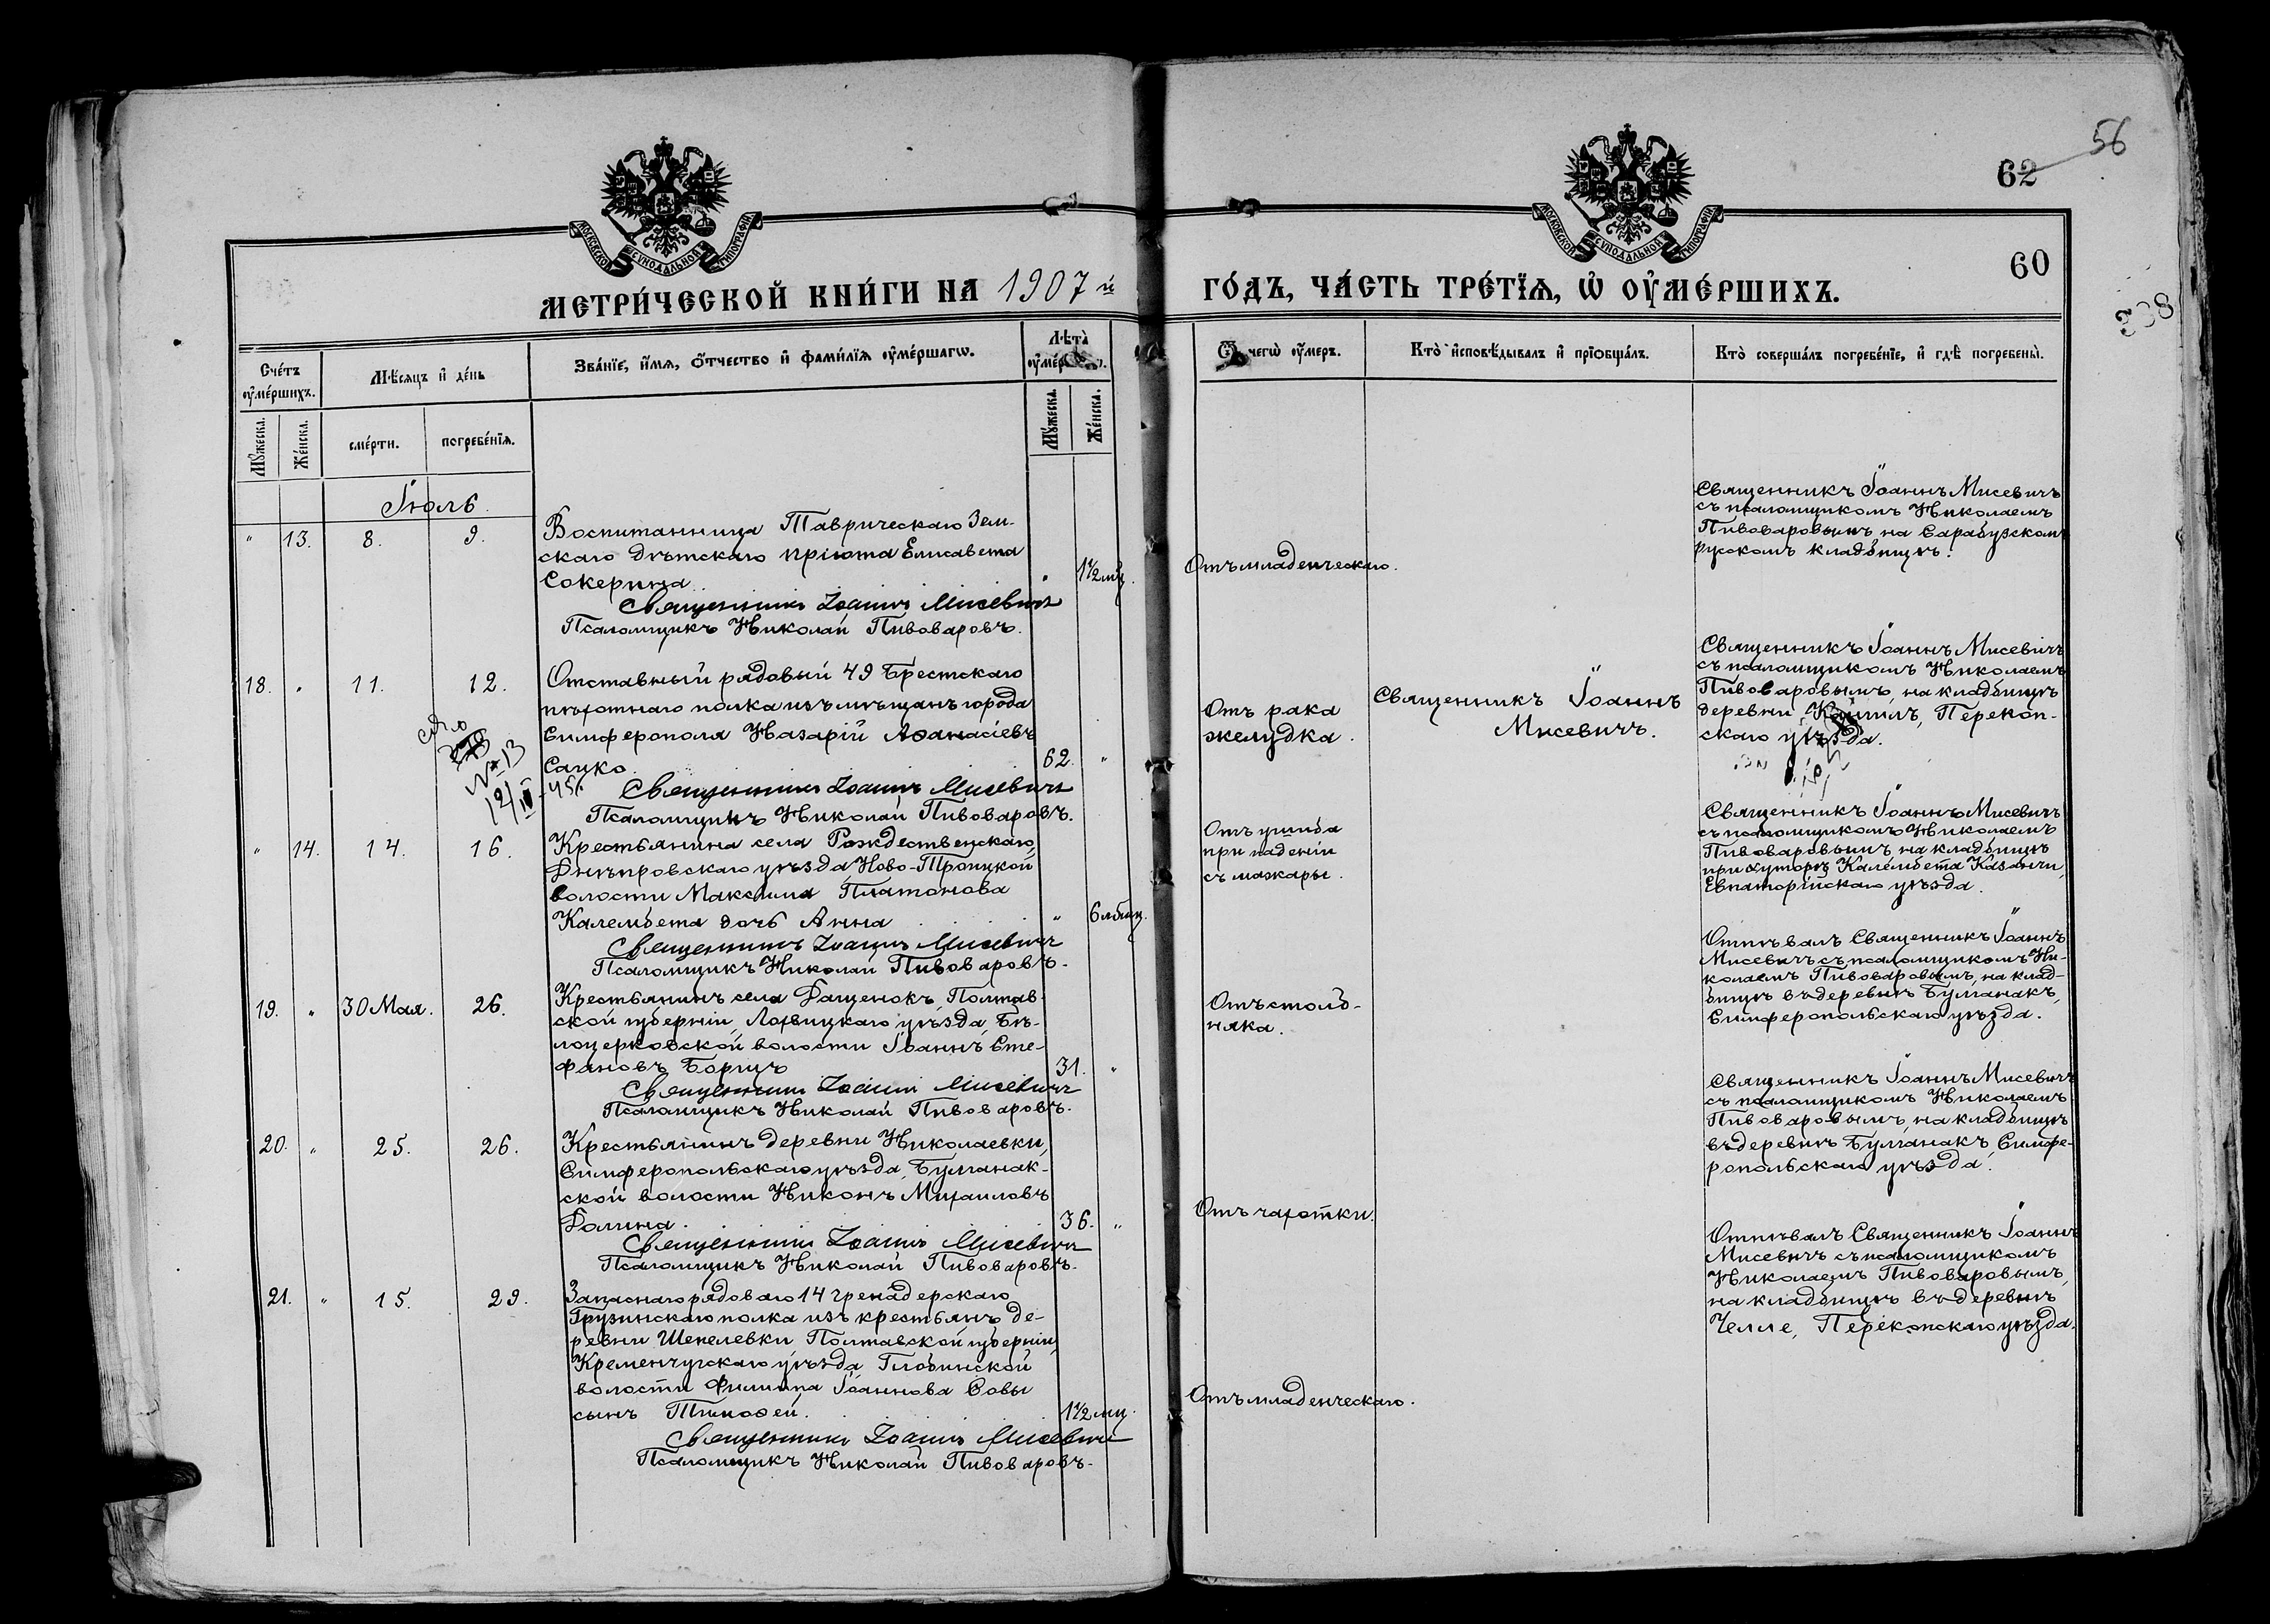 56
62
60
МОСКОВСКОЙ СУНОДАЛЬНОЙ ТИПОГРАФІИ
МОСКОВСКОЙ СУНОДАЛЬНОЙ ТИПОГРАФІИ
МЕТРИ́ЧЕСКОЙ КНИ́ГИ НА 1907 й
ГО́ДЪ, ЧА́СТЬ ТРЕ́ТЇѦ, Ѡ ОУ҆МЕ́РШИХЪ.
Сче́тъ оу҆ме́ршихъ.
Мѣ́сяцъ и҆ де́нь
Зва́нїе, и҆́мя, ѻ҆́тчество и҆ фами́лїя оу҆ме́ршагѡ.
Лѣ́та
Ѿ чегѡ̀ оу҆́меръ.
Кто̀ и҆сповѣ́дывалъ и҆ прїѡбща́лъ.
Кто̀ соверша́лъ погребе́нїе, и҆ гдѣ̀ погребены̀.
Мꙋ́жеска.
Же́нска.
сме́рти.
погребе́нїя.
Мꙋ́жеска.
Же́нска.
Іюль.
" 13. 8. 9.
Воспитанница Таврическаго Зем-
скаго дѣтскаго пріюта Елисавета
Сокерина.
" 1½ мц.
Священникъ Іоаннъ Мисевичъ
Псаломщикъ Николай Пивоваровъ.
Отъ младенческаго.
Священникъ Іоаннъ Мисевичъ
съ псаломщикомъ Николаемъ
Пивоваровымъ, на Сарабузскомъ
русскомъ кладбищѣ.
18. " 11. 12.
Отставный рядовый 49 Брестскаго
пѣхотнаго полка изъ мѣщанъ города
Симферополя Назарій Аѳанасіевъ
Сацко.
62. "
Священникъ Іоаннъ Мисевичъ
Псаломщикъ Николай Пивоваровъ.
Отъ рака
желудка.
Священникъ Іоаннъ
Мисевичъ.
Священникъ Іоаннъ Мисевичъ
съ псаломщикомъ Николаемъ
Пивоваровымъ, на кладбищѣ
деревни Перекоп-
скаго уѣзда.
" 14. 14. 16.
Крестьянина села Рождественскаго,
Днѣпровскаго уѣзда, Ново-Троицкой
волости Максима Платонова
Калембета дочь Анна
"
Священникъ Іоаннъ Мисевичъ
Псаломщикъ Николай Пивоваровъ.
Отъ ушиба
при паденіи
съ мажары.
Священникъ Іоаннъ Мисевичъ
съ псаломщикомъ Николаемъ
Пивоваровымъ, на кладбищѣ
при хуторѣ Калембета Казанчи,
Евпаторійскаго уѣзда.
19. " 30 Мая. 26.
Крестьянинъ села Фащенокъ, Полтав-
ской губерніи, Лохвицкаго уѣзда, Бѣ-
лоцерковской волости Іоаннъ Сте-
фановъ Борщъ
31. "
Священникъ Іоаннъ Мисевичъ
Псаломщикъ Николай Пивоваровъ.
Отъ столб-
няка.
Отпѣвалъ Священникъ Іоаннъ
Мисевичъ съ псаломщикомъ Ни-
колаемъ Пивоваровымъ, на клад-
бищѣ въ деревнѣ Булганакъ,
Симферопольскаго уѣзда.
20. " 25. 26.
Крестьянинъ деревни Николаевки,
Симферопольскаго уѣзда, Булганак-
ской волости Никонъ Михаиловъ
Долина.
36. "
Священникъ Іоаннъ Мисевичъ
Псаломщикъ Николай Пивоваровъ.
Отъ чахотки.
Священникъ Іоаннъ Мисевичъ
съ псаломщикомъ Николаемъ
Пивоваровымъ, на кладбищѣ
въ деревнѣ Булганакъ, Симфе-
ропольскаго уѣзда.
21. " 15. 29.
Запаснаго рядоваго 14 гренадерскаго
Грузинскаго полка изъ крестьянъ де-
ревни Шепелевки Полтавской губерніи,
Кременчугскаго уѣзда, Глобинской
волости Филиппа Іоаннова Совы
сынъ Тимоѳей.
1½ мц.
Священникъ Іоаннъ Мисевичъ
Псаломщикъ Николай Пивоваровъ.
Отъ младенческаго.
Отпѣвалъ Священникъ Іоаннъ
Мисевичъ съ псаломщикомъ
Николаемъ Пивоваровымъ,
на кладбищѣ въ деревнѣ
Челле, Перекопскаго уѣзда.